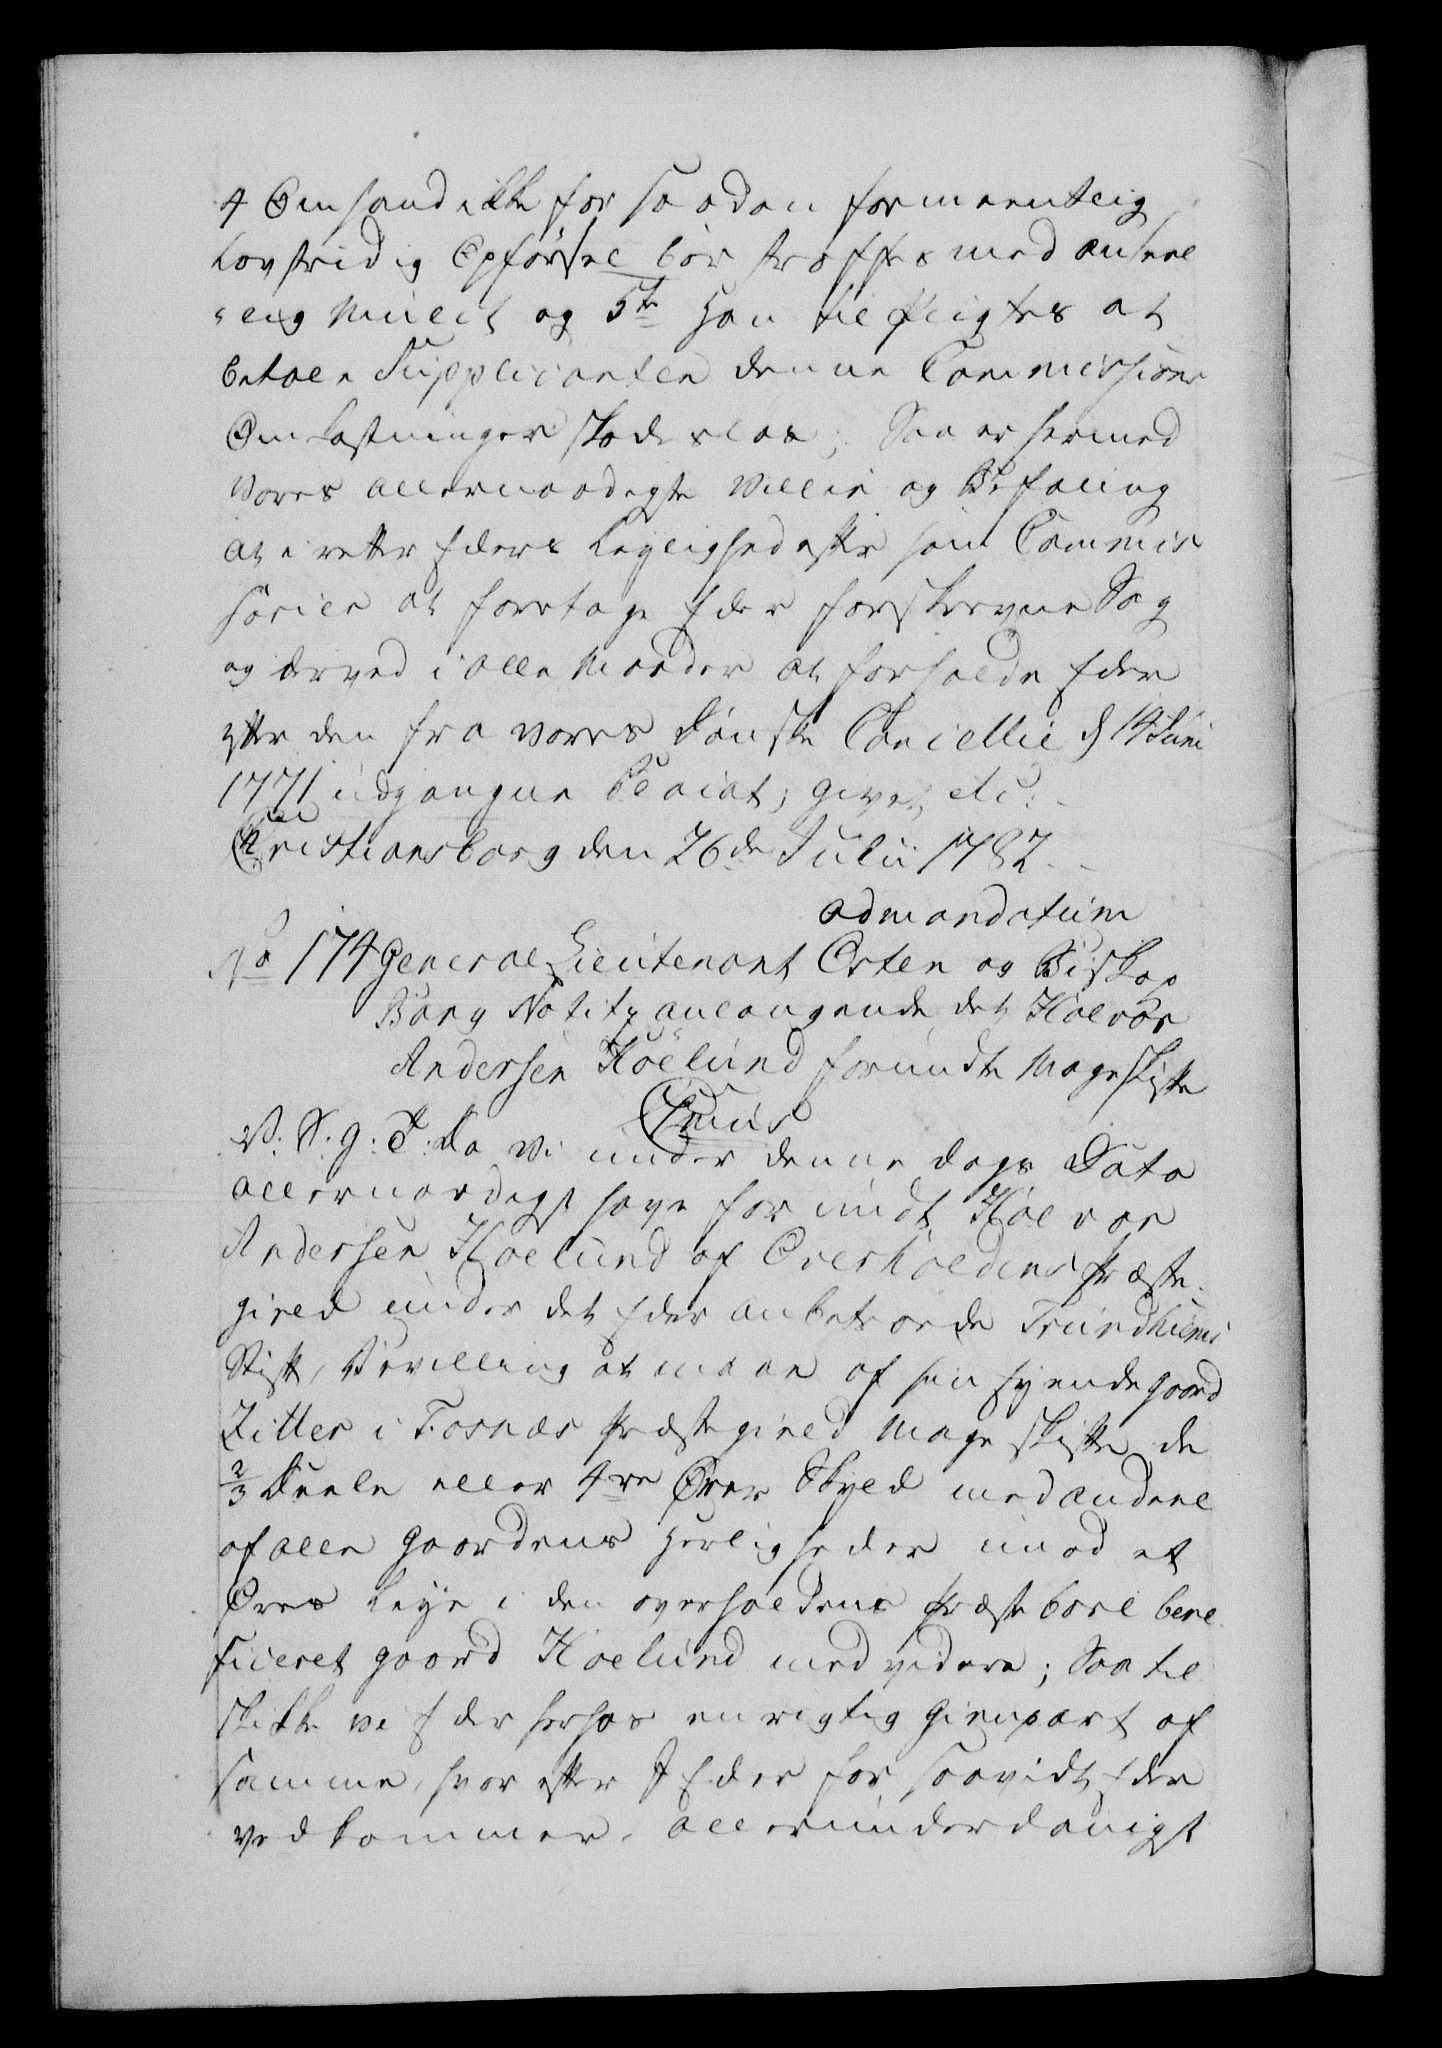 4 Om hand ikke for saadan formeentlig
Lovstridig Opførsel bør straffes med anseel
selig Mulct og 5te Han tilpligtes at
betale Supplicanten denne Commissions
Omkostninger skadesløs; Saa er hermed
Vores allernaadigste Villie og Befaling
at i retter Eders Leylighed efter som Commis
sarier at foretage Eder forskrevne Sag
og derved i alle Maader at forholde Eder
efter den fra vores Danske Cancellie d 14 Juni
1771 udgangne Placat; givet etc:
Christiansborg den 26de Julii 1782.
ad mandatum
No 174 General Lieutenant Osten og Biskop
Bang Notitz anlangende det Haldor
Andersen Høelund forundte Mageskifte
Cronis
V: S: g: T: Da Vi under denne Dags Dato
allernaadigst have forundt Haldor
Andersen Høelund af Overhaldens Præste
gield under det Eder anbetroede Trundhiems
Stift, Bevilling at maae af sin eyende gaard
Zitter i Fosnæs Præstegield Mageskifte de
2/3 Deele eller 4re Ører Skyld med andeel
af alle gaardens Herligheder imod et
Øres Leye i den overhaldens Præstebord bene
ficeret gaard Høelund med videre; Saa til
skikke vi Eder herhos en rigtig Gienpart af
samme, hvor efter I Eder for saavidt Eder
vedkommer, allerunderdanigst